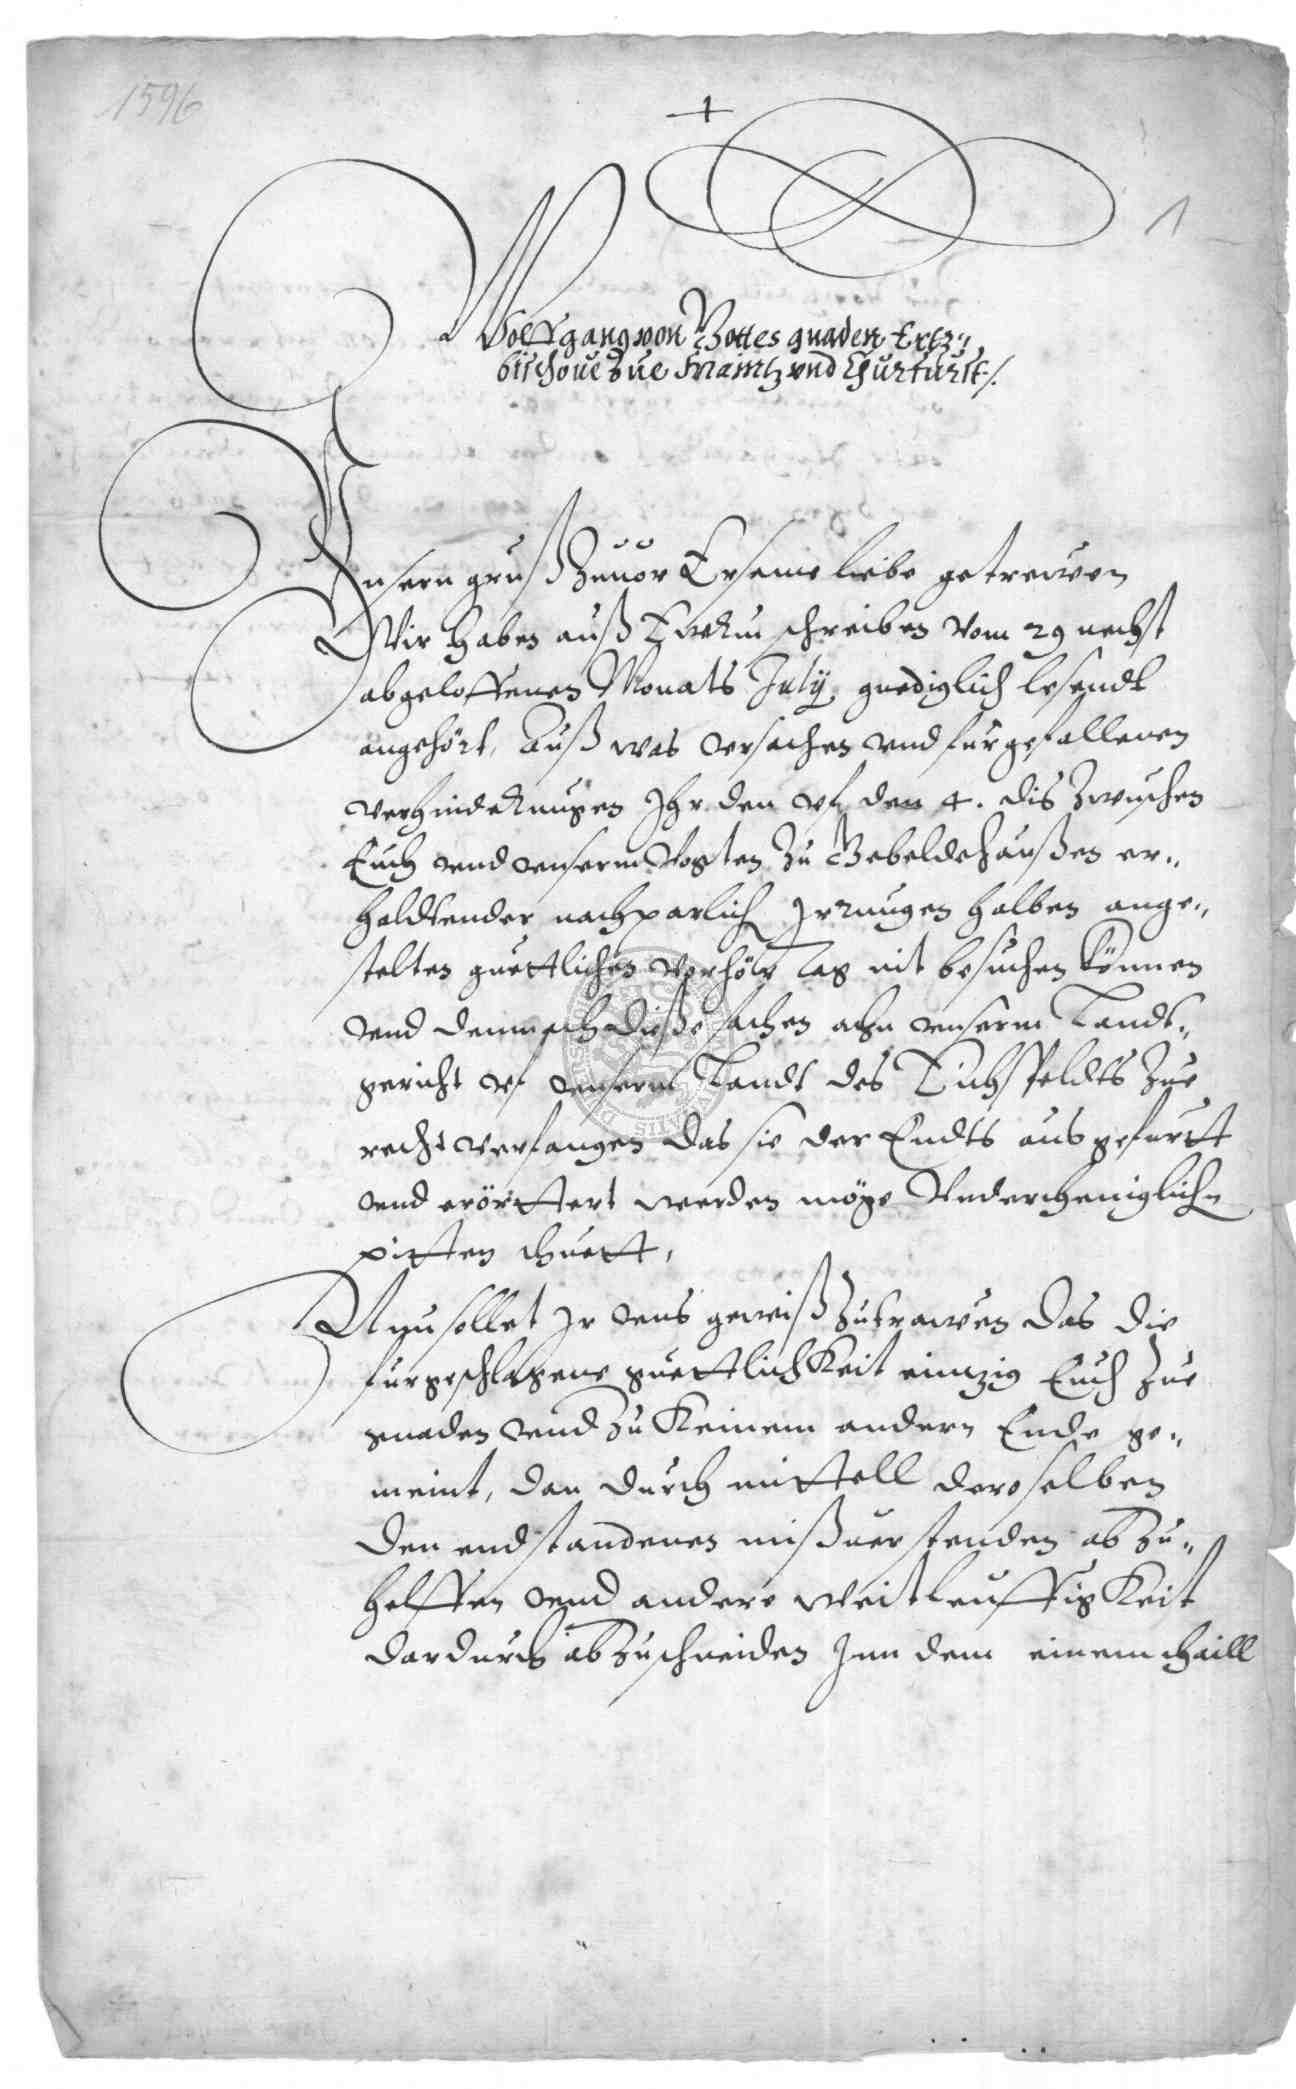 1596
1
Wolffgang von Gottes gnaden Ertz„
bischoue Zue Maintz vnd Churfurst /.
Vnsern gruß Zuuor Ersame liebe getrewen
Wir haben auß Ewerm schreiben vom 29 nechst
abgeloffenen Monats July gnediglich lesendt
angehört, Auß was vrsachen vnd furgefallenen
verhinderungen Ihr den vf den 4. dis Zwuschen
Euch vnd vnserm Vogten Zu Gebeldehaußen er„
haldtender nachparlich Irrungen halben ange„
stelten guettlichen verhör tag nit besuchen können
vnd demnach dieße sachen ahn vnserm Landt„
gericht vf vnserm Landt des Eichsfeldts Zue
recht verfangen das sie der Endts ausgefurtt
vnd erörttert werden möge Vndertheniglich
pitten thuett,
Nun sollet Ir vns gewiß Zutrawen das die
furgeschlagene guettlichKeit eintzig Euch Zue
gnaden vnd Zu Keinem andern Ende ge„
meint, dan durch mittell deroselben
den endstandenen mißuerstenden ab Zu„
helffen vnd andere weitleuffigKeit
dardurch abZuschneiden Inn dem einem thaill